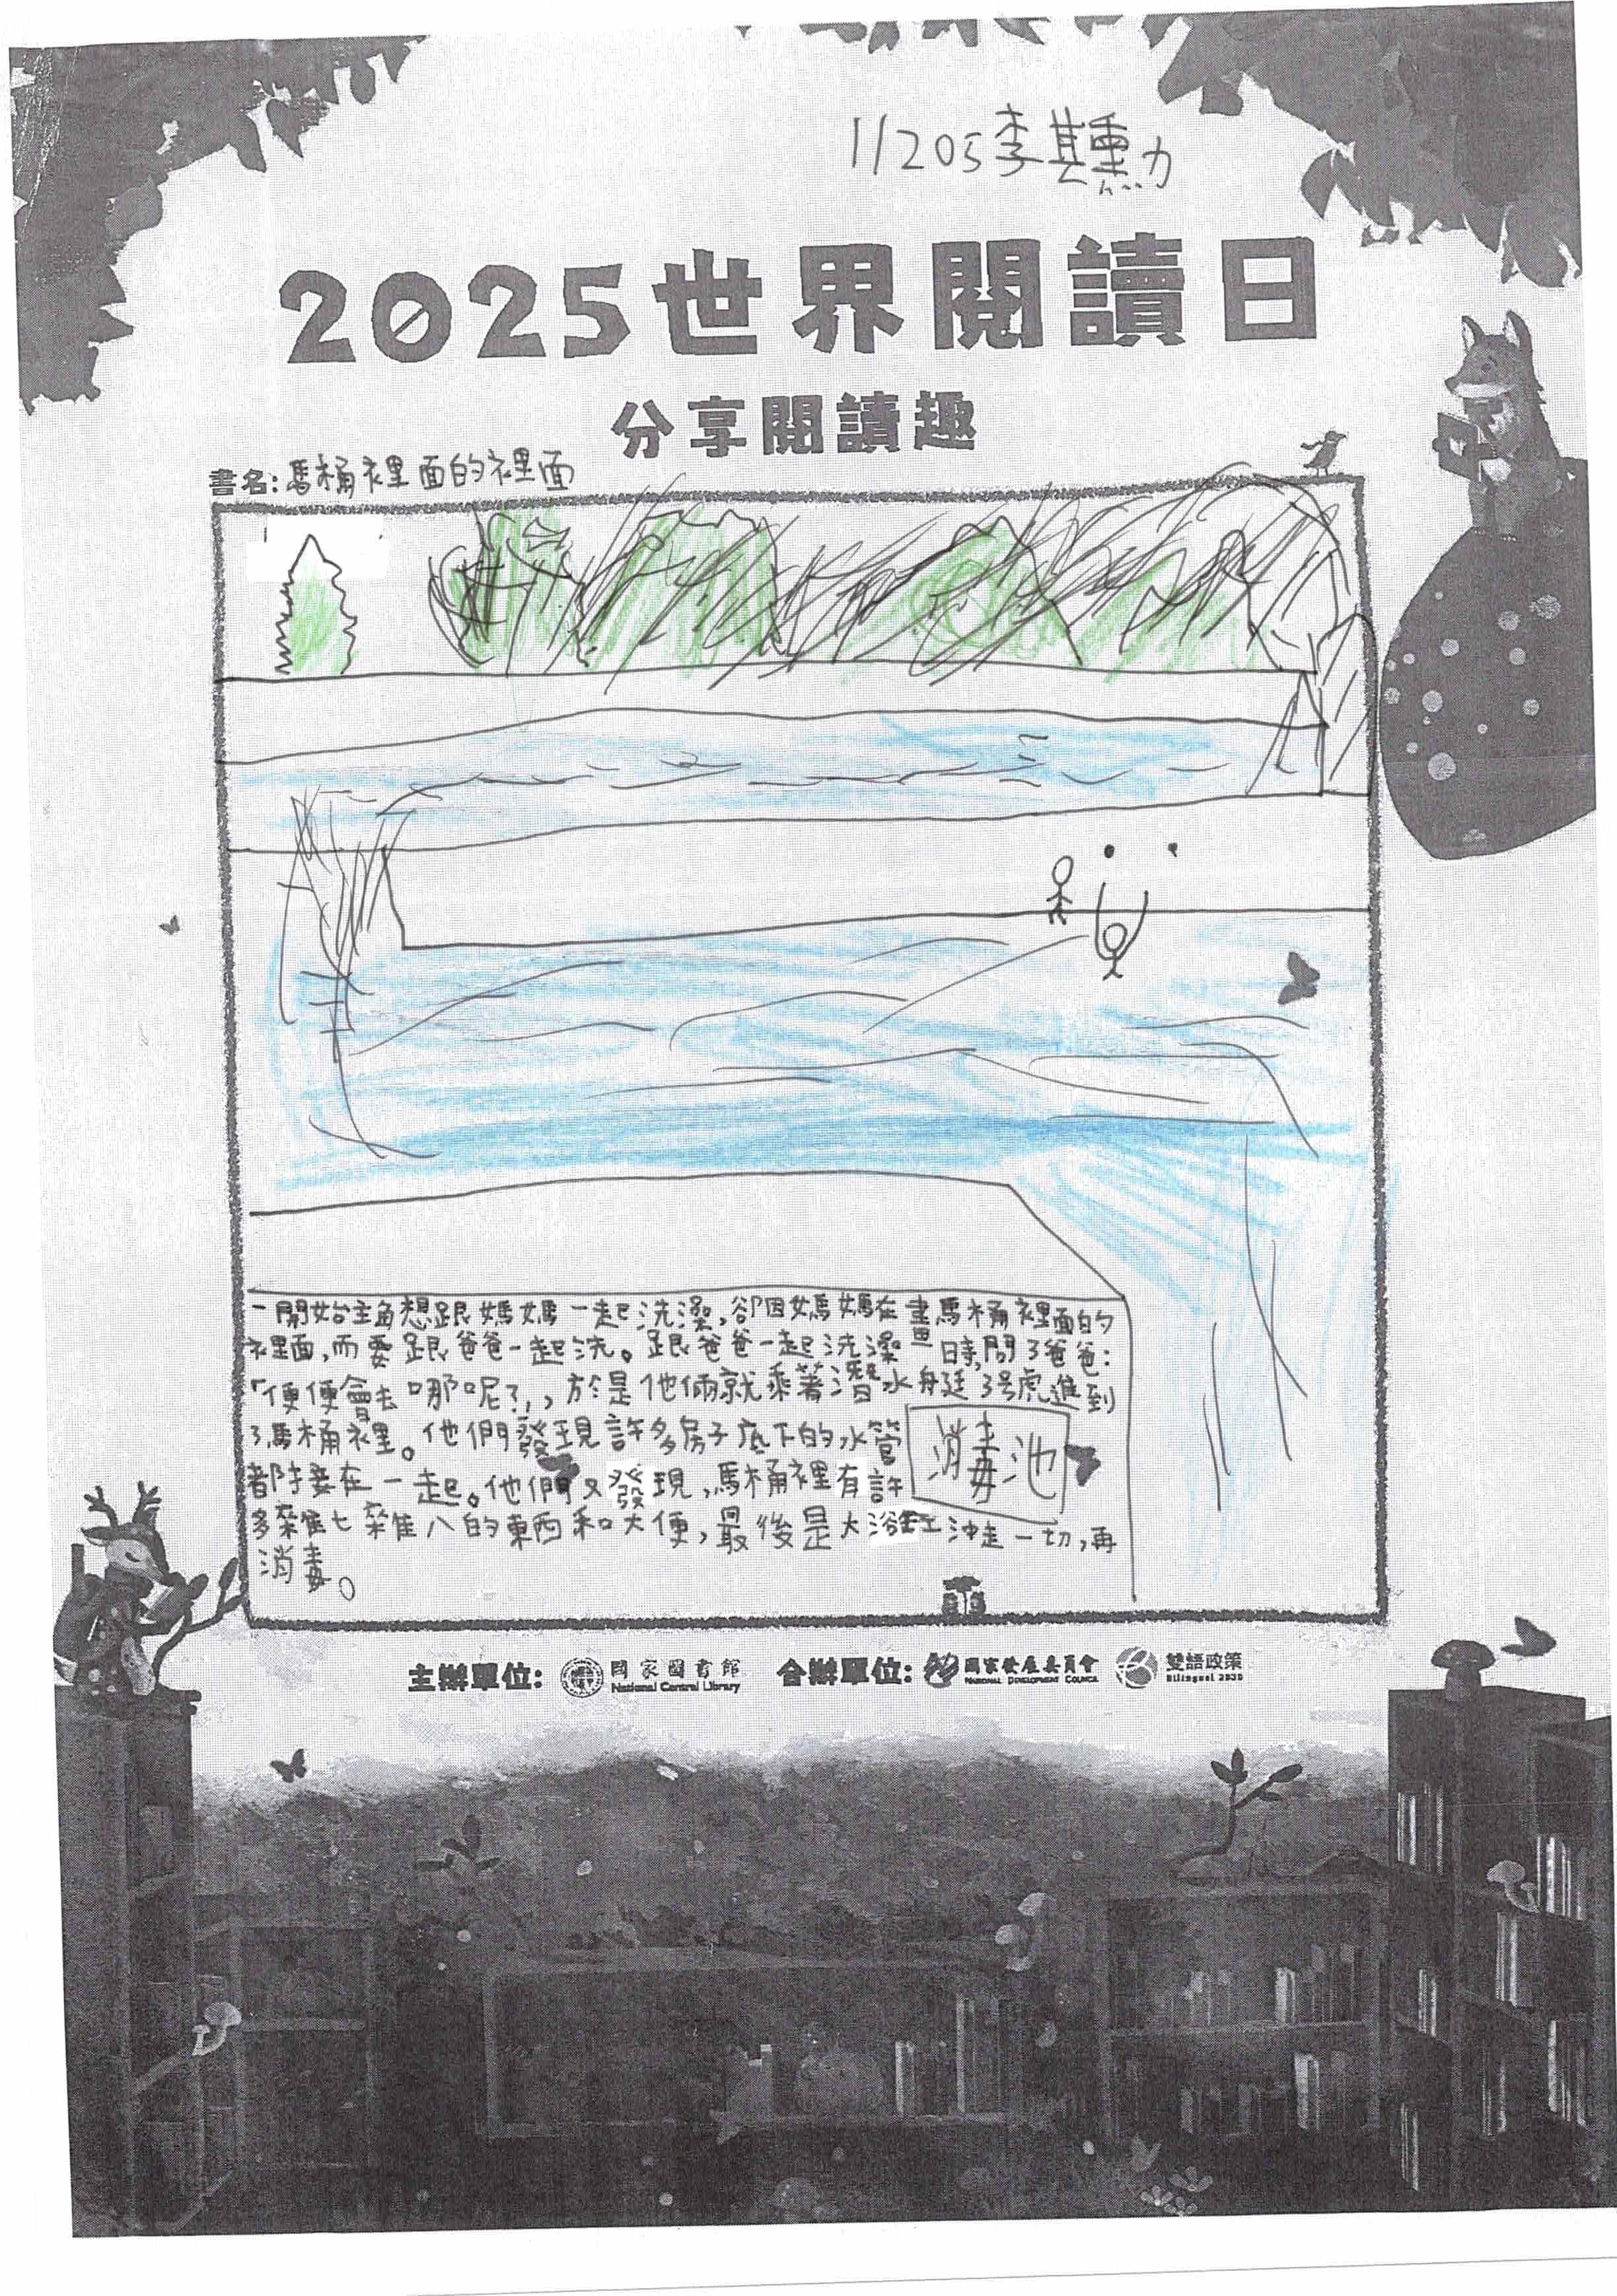 11205李其勳
2025世界閱讀日
分享閱讀趣
書名:馬桶裡面的裡面
一開始主角想跟媽媽一起洗澡,卻因媽媽在畫馬桶裡面的
裡面,而要跟爸爸一起洗。跟爸爸一起洗澡時,問了爸爸:
「便便會去哪呢?」,於是他倆就乘著潛水舟廷3號進到
了馬桶裡。他們發現許多房子底下的水管
都接在一起。他們又發現,馬桶裡有許
多雜七雜八的東西和大便,最後是大浴缸沖走一切,再
消毒。
消毒池
主辦單位: 國家圖書館 National Central Library 合辦單位: 國家發展委員會 National Development Council 雙語政策 Bilingual 2030